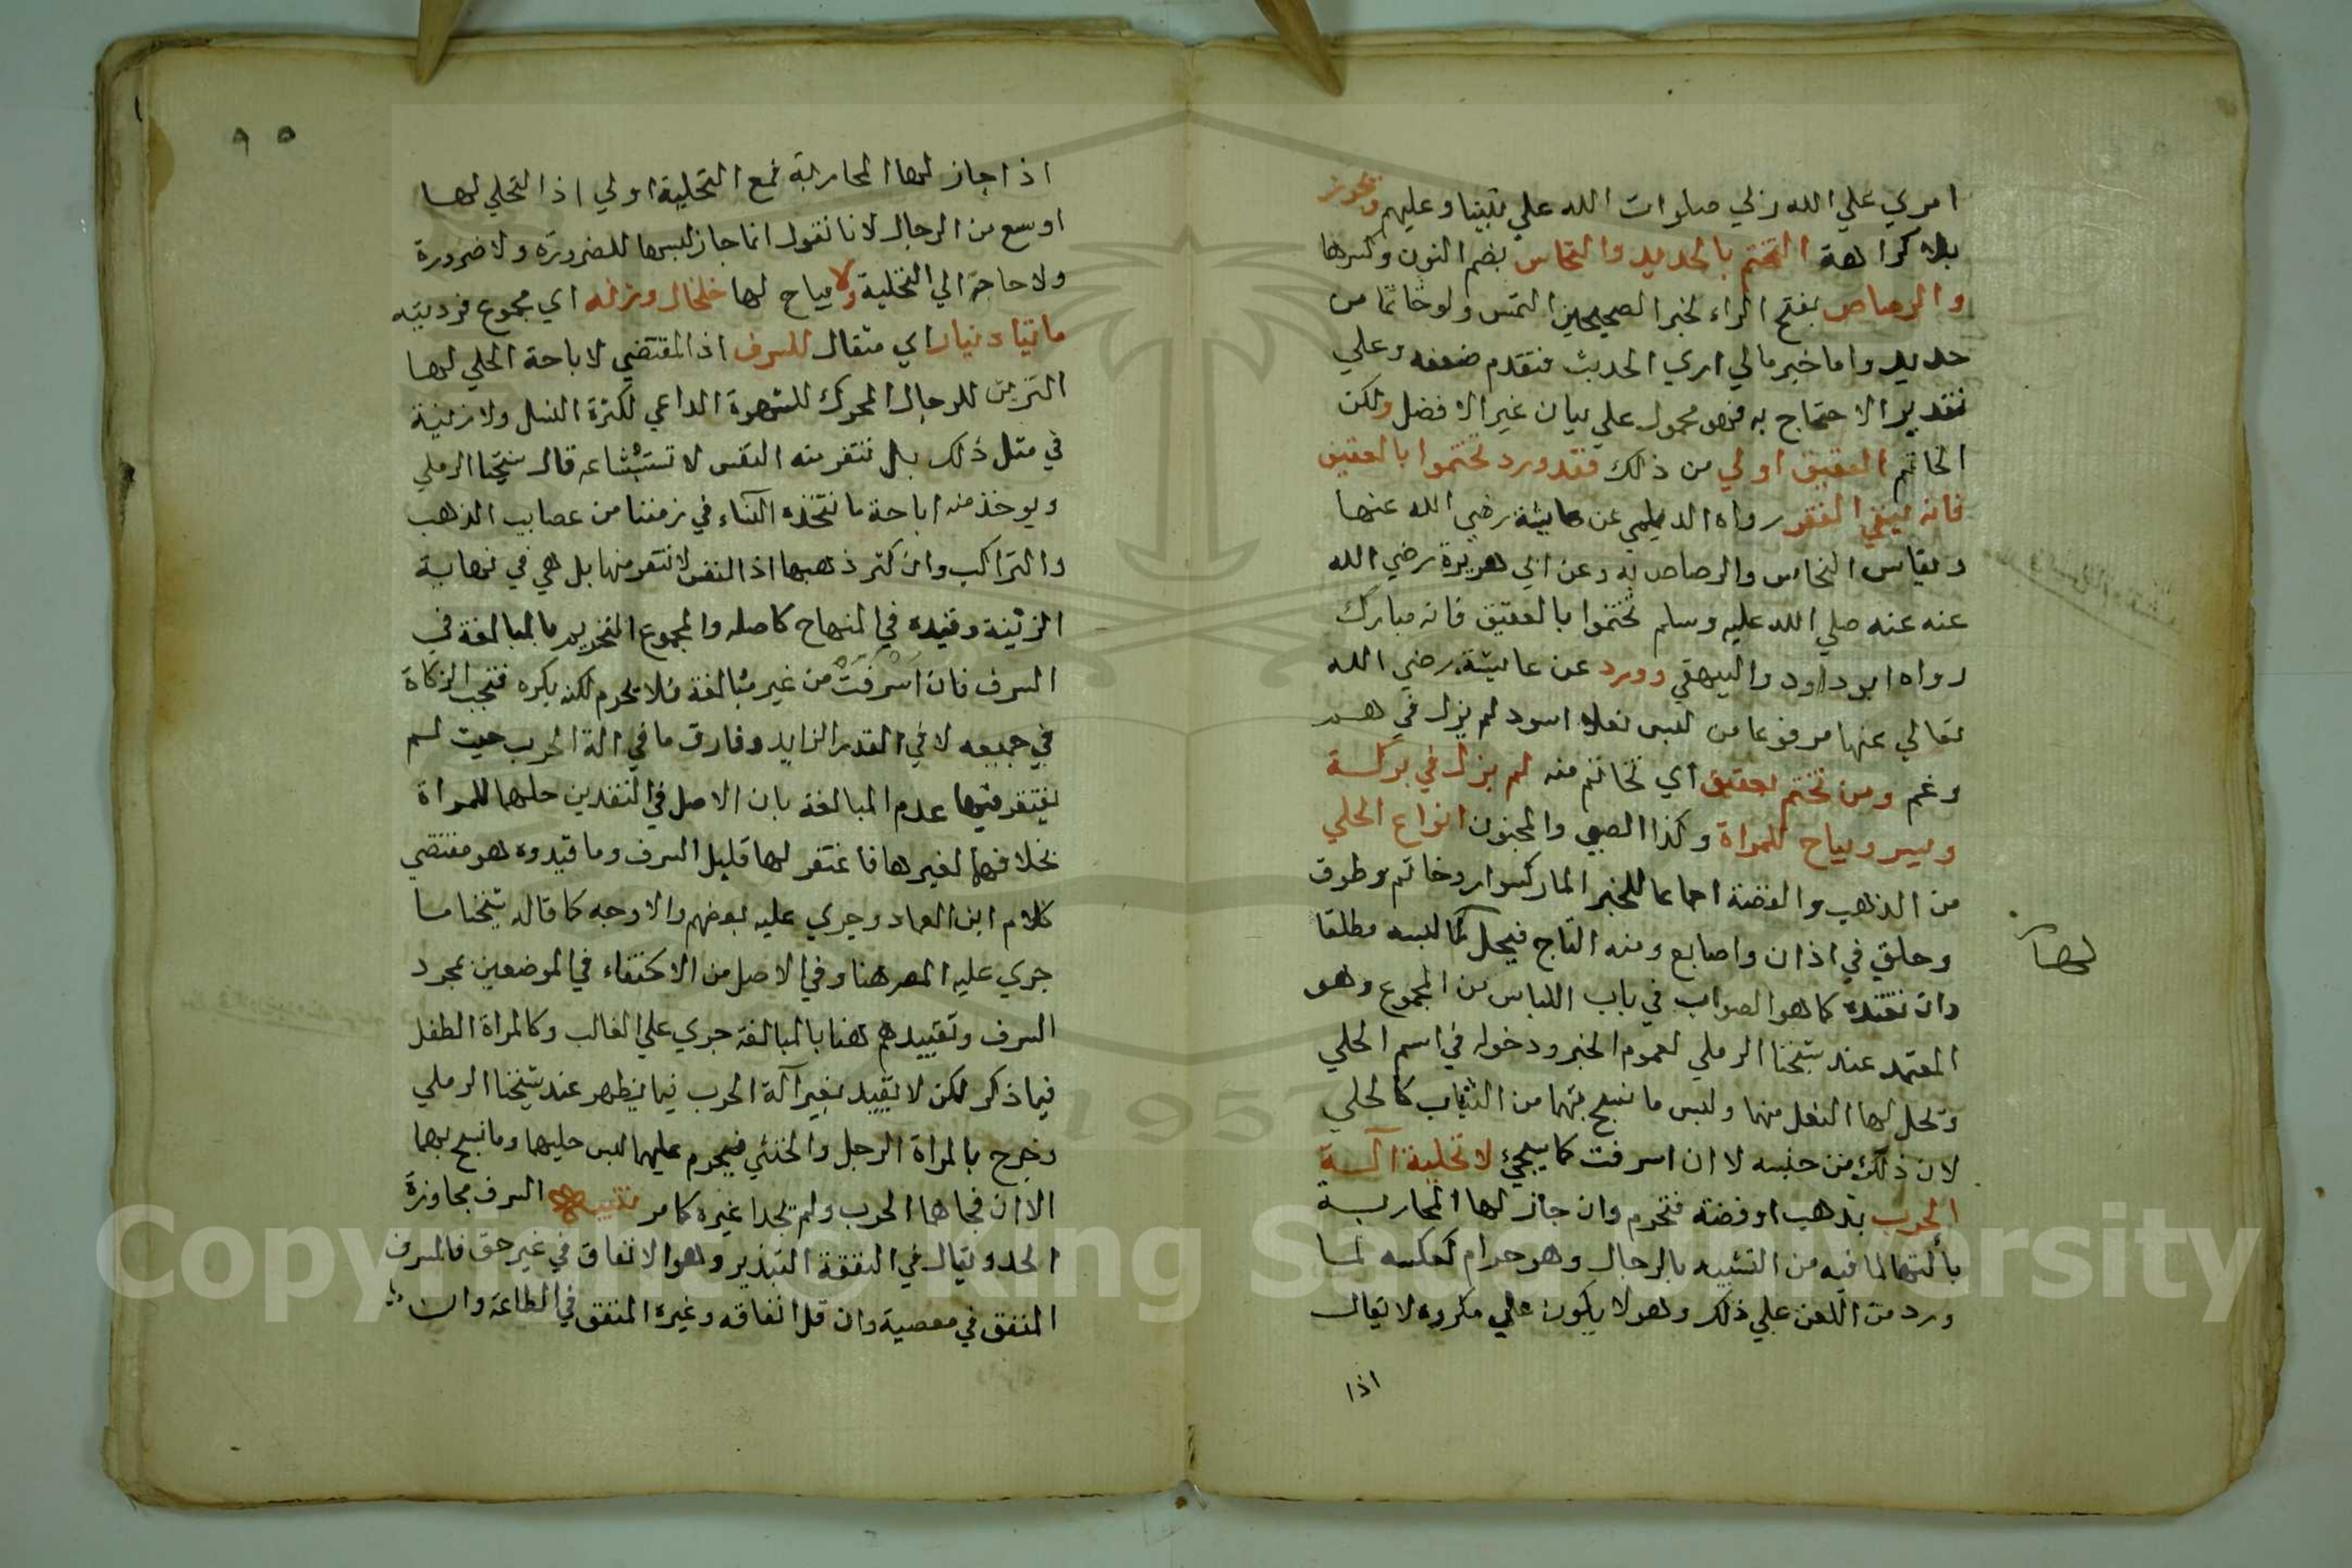 امري علي الله زلي صلوات الله علي نبينا وعليهم ويجوز
بلا كراهة التختم بالحديد والنحاس بضم النون وكسرها
والرصاص بفتح الراء لخبر الصحيحين التمس ولو خاتما من
حديد واما خبر مالي اري الحديث فتقدم ضعفه وعلي
تقدير الاحتجاج به فهو محمول علي بيان غير الافضل ولكن
الخاتم العقيق اولي من ذلك فقد ورد تختموا بالعقيق
فانه ينفي الفقر رواه الديلمي عن عايشة رضي الله عنها
ويقاس النحاس والرصاص به وعن ابي هريرة رضي الله
عنه عنه صلي الله عليه وسلم تختموا بالعقيق فانه مبارك
رواه ابو داود والبيهقي وورد عن عايشة رضي الله
تعالي عنها مرفوعا من لبس نعلا اسود لم يزل في هم
وغم ومن تختم بعقيق اي تخاتم منه لم يزل في بركة
ويسر ويباح للمراة وكذا الصبي والمجنون انواع الحلي
من الذهب والفضة اجماعا للخبر المار كسوار وخاتم وطوق
وحلق في اذان واصابع ومنه التاج فيحل لها لبسه مطلقا
وان تعتده كما هو الصواب في باب اللباس من المجموع وهو
المعتمد عند شيخنا الرملي لعموم الخبر ودخوله في اسم الحلي
وتحل لها النعل منها ولبس ما نسج بهما من الثياب كالحلي
لان ذلك من جنسه لا ان اسرفت كما سيجئ لا تحلية آلة
الحرب بذهب او فضة فتحرم وان جاز لها المحاربة
بآلتها لما فيه من التشبيه بالرجال وهو حرام كعكسه لما
ورد من اللعن علي ذلك وهو لا يكون علي مكروه لا يقال
اذا
لها
٩٥
اذا جاز لها المحاربة فمع التحلية اولي اذ التحلي لها
اوسع من الرجال لانا نقول انما جاز لبسها للضرورة ولا ضرورة
ولا حاجة الي التحلية ولا يباح لها خلخال وزنه اي مجموع فردتيه
ماتيا دنيار اي مثقال للسرف اذ المقتضي لاباحة الحلي لها
التزين للرجال المحرك للشهوة الداعي لكثرة النسل ولا زينة
في مثل ذلك بل تنفر منه النفس لاستبشاعه قال شيخنا الرملي
ويوخذ منه اباحة ما تتخذه النساء في زمننا من عصايب الذهب
والتراكيب وان كثر ذهبها اذ النفس لا تنفر منها بل هي في نهاية
الزينة وقيده في المنهاج كاصله والمجموع التحريم بالمبالغة في
السرف فان اسرفت من غير مبالغة فلا يحرم لكنه يكره فتجب الزكاة
في جميعه لا في القدر الزايد وفارق ما في الة الحرب حيث لم
يغتفر فيها عدم المبالغة بان الاصل في النقدين حلهما للمراة
بخلافهما لغيرها فاغتفر لها قليل السرف وما قيدوه هو مقتضي
كلام ابن العماد وجري عليه بعضهم والاوجه كما قاله شيخنا ما
جري عليه المصر هنا وفي الاصل من الاكتفاء في الموضعين بمجرد
السرف وتقييدهم هنا بالمبالغة جري علي الغالب وكالمراة الطفل
فيما ذكر لكن لا يتقيد بغير آلة الحرب فيما يظهر عند شيخنا الرملي
وخرج بالمراة الرجل والخنثي فيحرم عليهما لبس حليها وما نسج بهما
الا ان فجاها الحرب ولم يجدا غيره كما مر تنبيه السرف مجاوزة
الحد ويقال في النفقة التبذير وهو الانفاق في غير حق فالمسرف
المنفق في معصية وان قل انفاقه وغيره المنفق في الطاعة وان
Copyright © King Saud University
1957